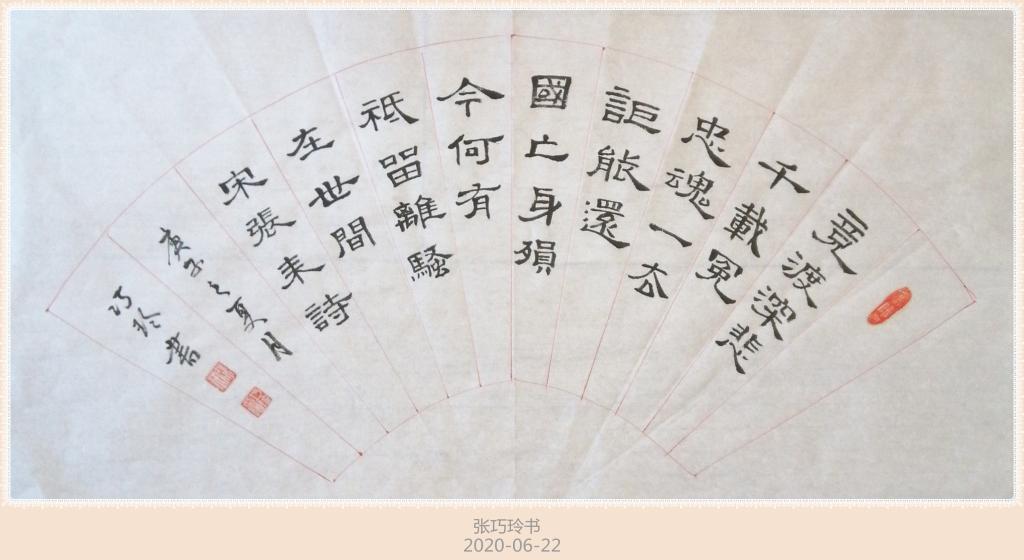 竟渡深悲
千載冤
忠魂一去
詎能還
國亡身殞
今何有
祗留離騷
在世間
宋張耒詩
庚子之夏月
巧玲書
张巧玲书
2020-06-22